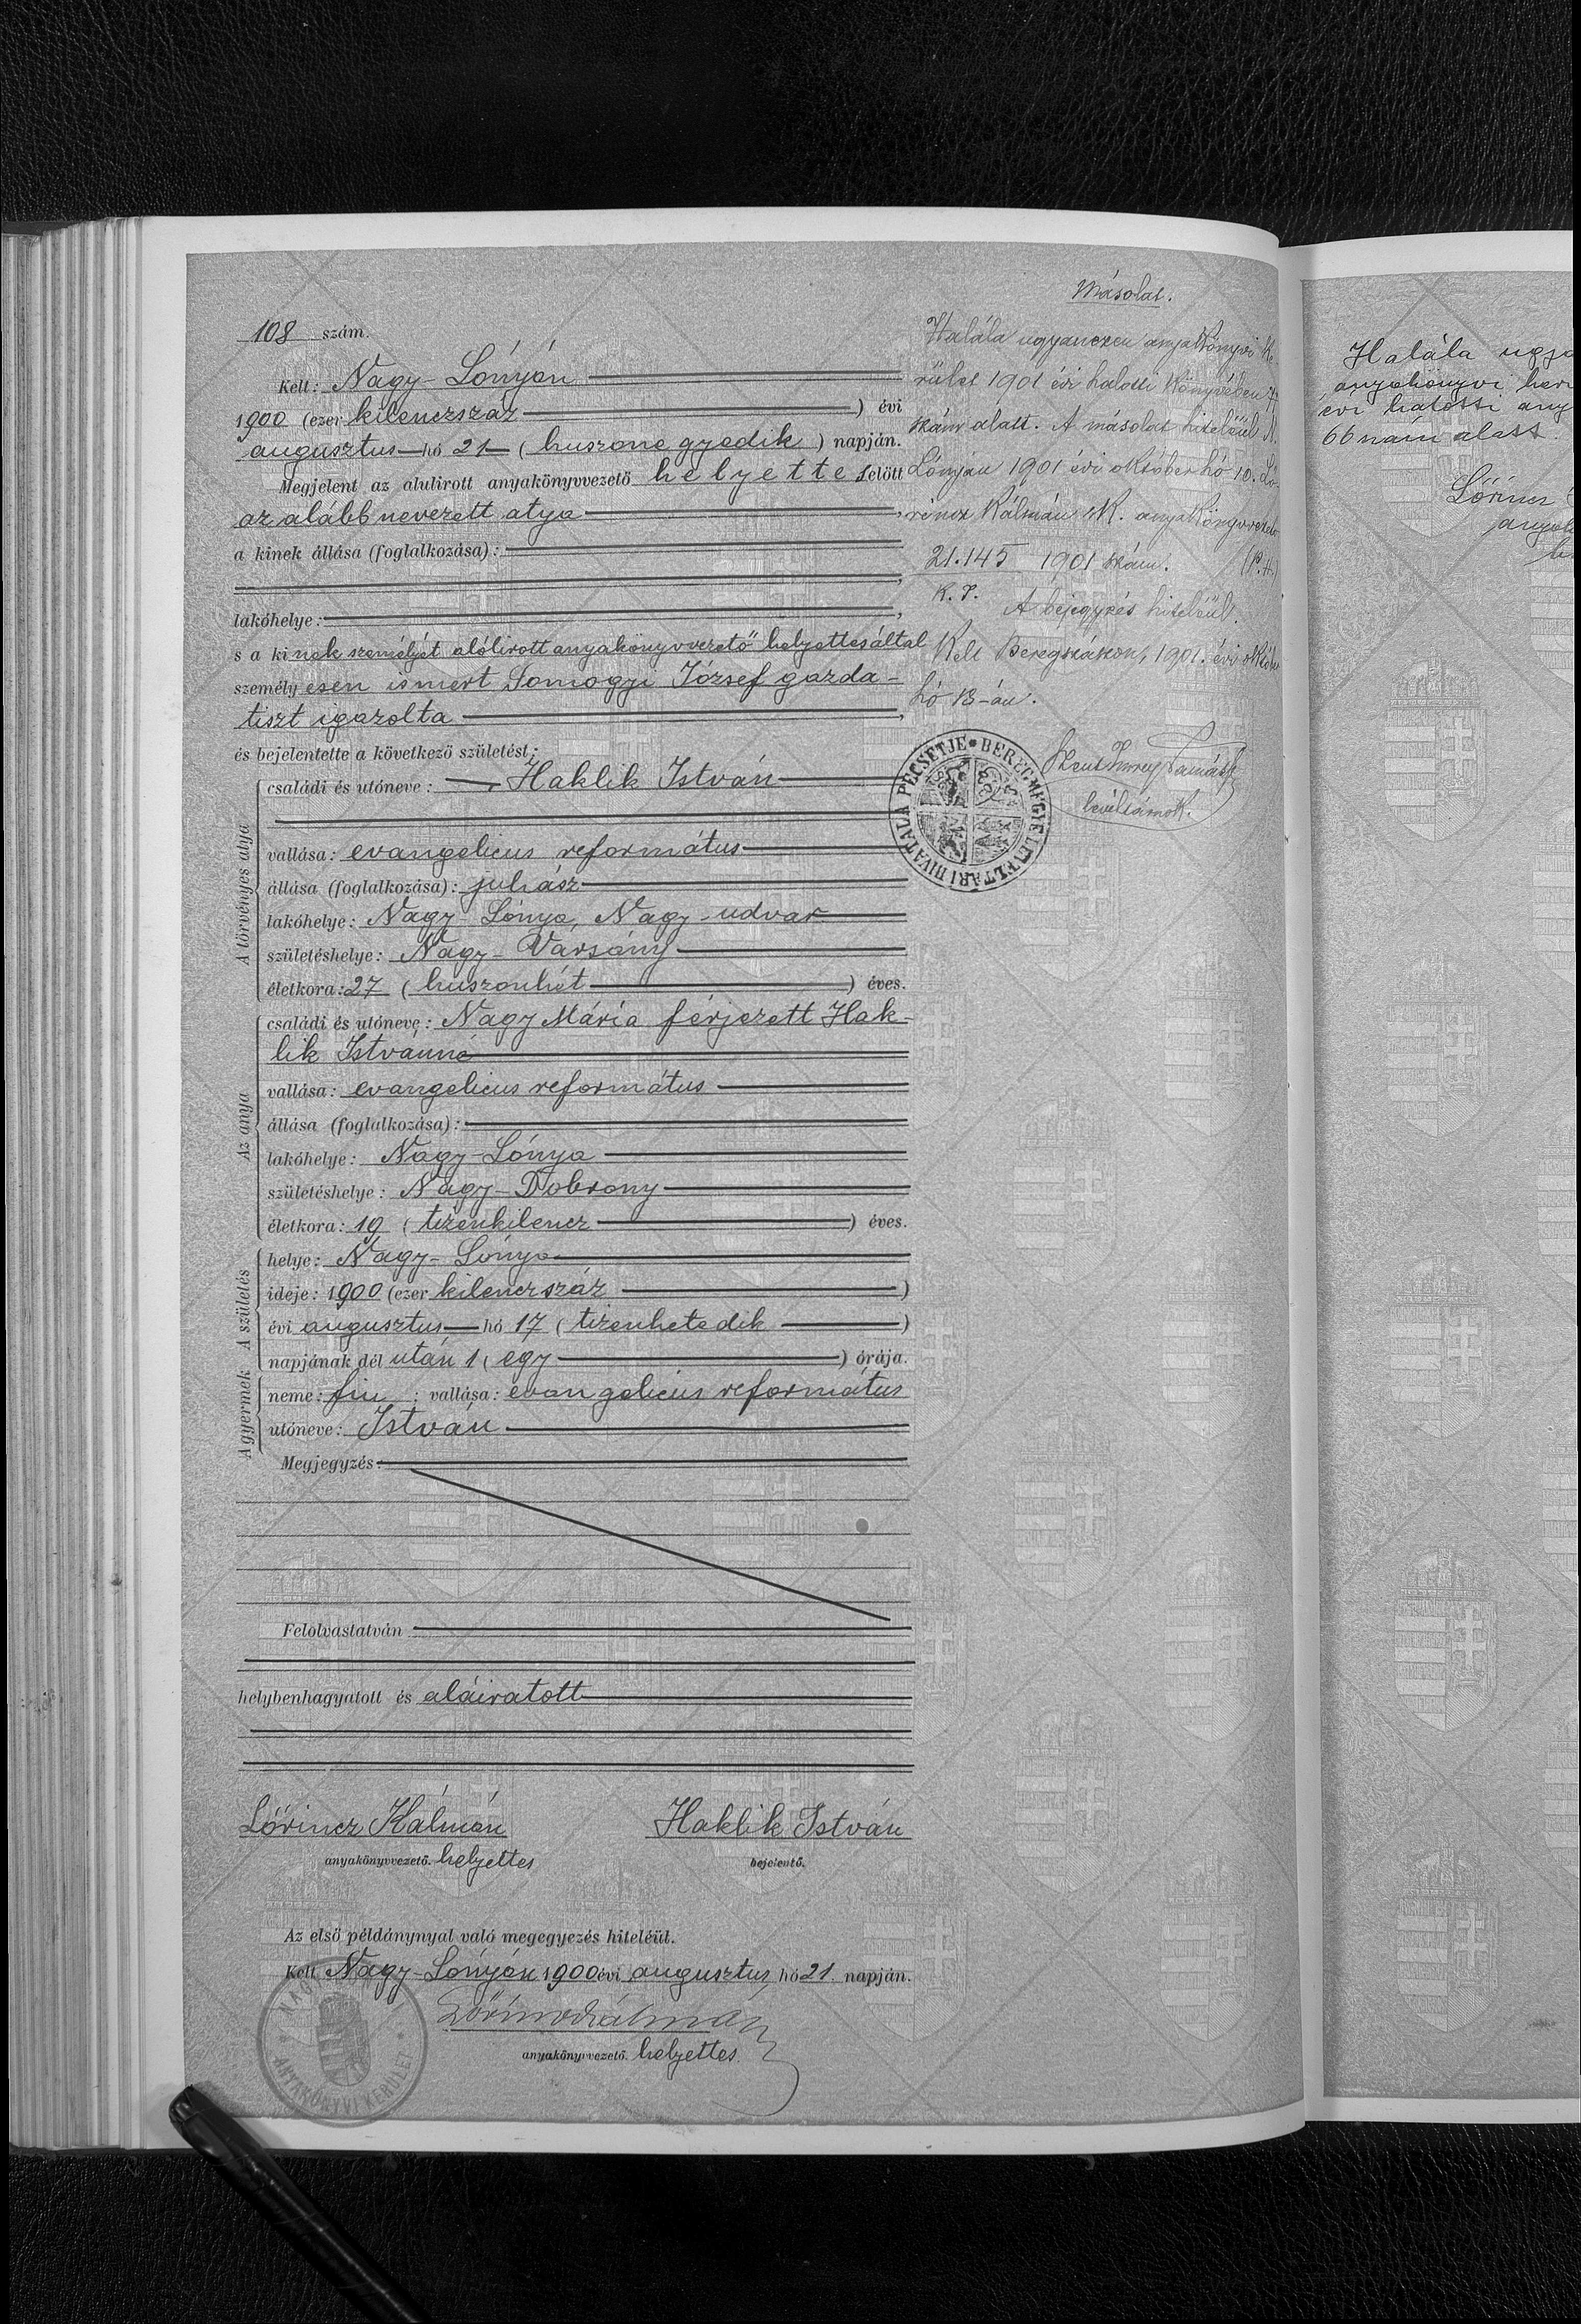 108 szám.
Kelt: Nagy-Lónyán
1900 (ezer kilenczszáz) évi
augusztus hó 21 (huszonegyedik) napján.
Megjelent az alulirott anyakönyvvezető helyettes előtt
az alább nevezett atya,
a kinek állása (foglalkozása):
,
lakóhelye: ,
s a kinek személyét alólirott anyakönyvvezető helyettes által
személyesen ismert Somogyi József gazda-
tiszt igazolta,
és bejelentette a következő születést:
A törvényes atya
családi és utóneve: Haklik István
vallása: evangelicus református
állása (foglalkozása): juhász
lakóhelye: Nagy-Lónya, Nagy-udvar
születéshelye: Nagy-Varsány
életkora: 27 (huszonhét) éves.
Az anya
családi és utóneve: Nagy Mária férjezett Hak-
lik Istvánné
vallása: evangelicus református
állása (foglalkozása):
lakóhelye: Nagy-Lónya
születéshelye: Nagy-Dobrony
életkora: 19 (tizenkilencz) éves.
A születés
helye: Nagy-Lónya
ideje: 1900 (ezer kilenczszáz)
évi augusztus hó 17 (tizenhetedik)
napjának dél után 1 (egy) órája.
A gyermek
neme: fiu; vallása: evangelicus református
utóneve: István
Megjegyzés:
Felolvastatván
helybenhagyatott és aláiratott
Lőrincz Kálmán Haklik István
anyakönyvvezető. helyettes bejelentő.
Az első példánynyal való megegyezés hiteléül.
Kelt Nagy-Lónyán 1900 évi augusztus hó 21. napján.
Lőrincz Kálmán
anyakönyvvezető. helyettes
ANYAKÖNYVI KERÜLET
Másolat.
Halála ugyanezen anyakönyvi ke-
rület 1901 évi halotti könyvében
szám alatt. A másolat hiteléül N.
Lónyán 1901 évi október hó 10. Lő-
rincz Kálmán s.k. anyakönyvvezető
21.145 1901 szám. (P.H.)
K. I.
A bejegyzés hiteléül.
Kelt Beregszászon, 1901. évi október
hó 18-án.
Tamás
levéltárnok.
BEREGMEGYE LEVÉLTÁRI HIVATALA PECSÉTJE
Halála ugya
anyakönyvi ker
évi halotti any
66 szám alatt.
Lőrincz
anyak
he